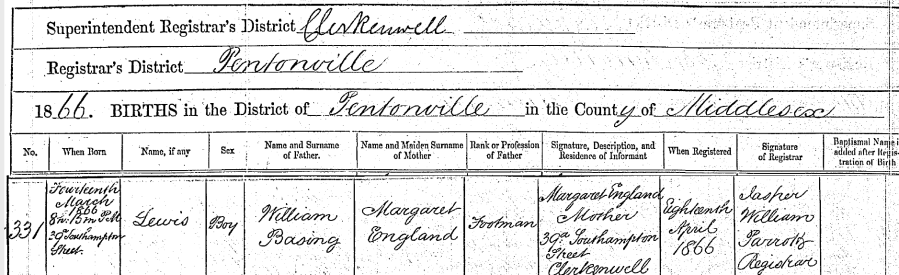 Superintendent Registrar's District Clerkenwell
Registrar's District Pentonville
1866. BIRTHS in the District of Pentonville in the County of Middlesex
No. When Born Name, if any Sex Name and Surname of Father. Name and Maiden Surname of Mother Rank or Profession of Father Signature, Description, and Residence of Informant When Registered Signature of Registrar Baptismal Name if added after Registration of Birth
331
Fourteenth
March
1866
8 h. 15 m P.M
39a Southampton
Street.
Lewis
Boy
William
Basing
Margaret
England
Footman
Margaret England
Mother
39a Southampton
Street
Clerkenwell
Eighteenth
April
1866
Jasper
William
Parrott
Registrar